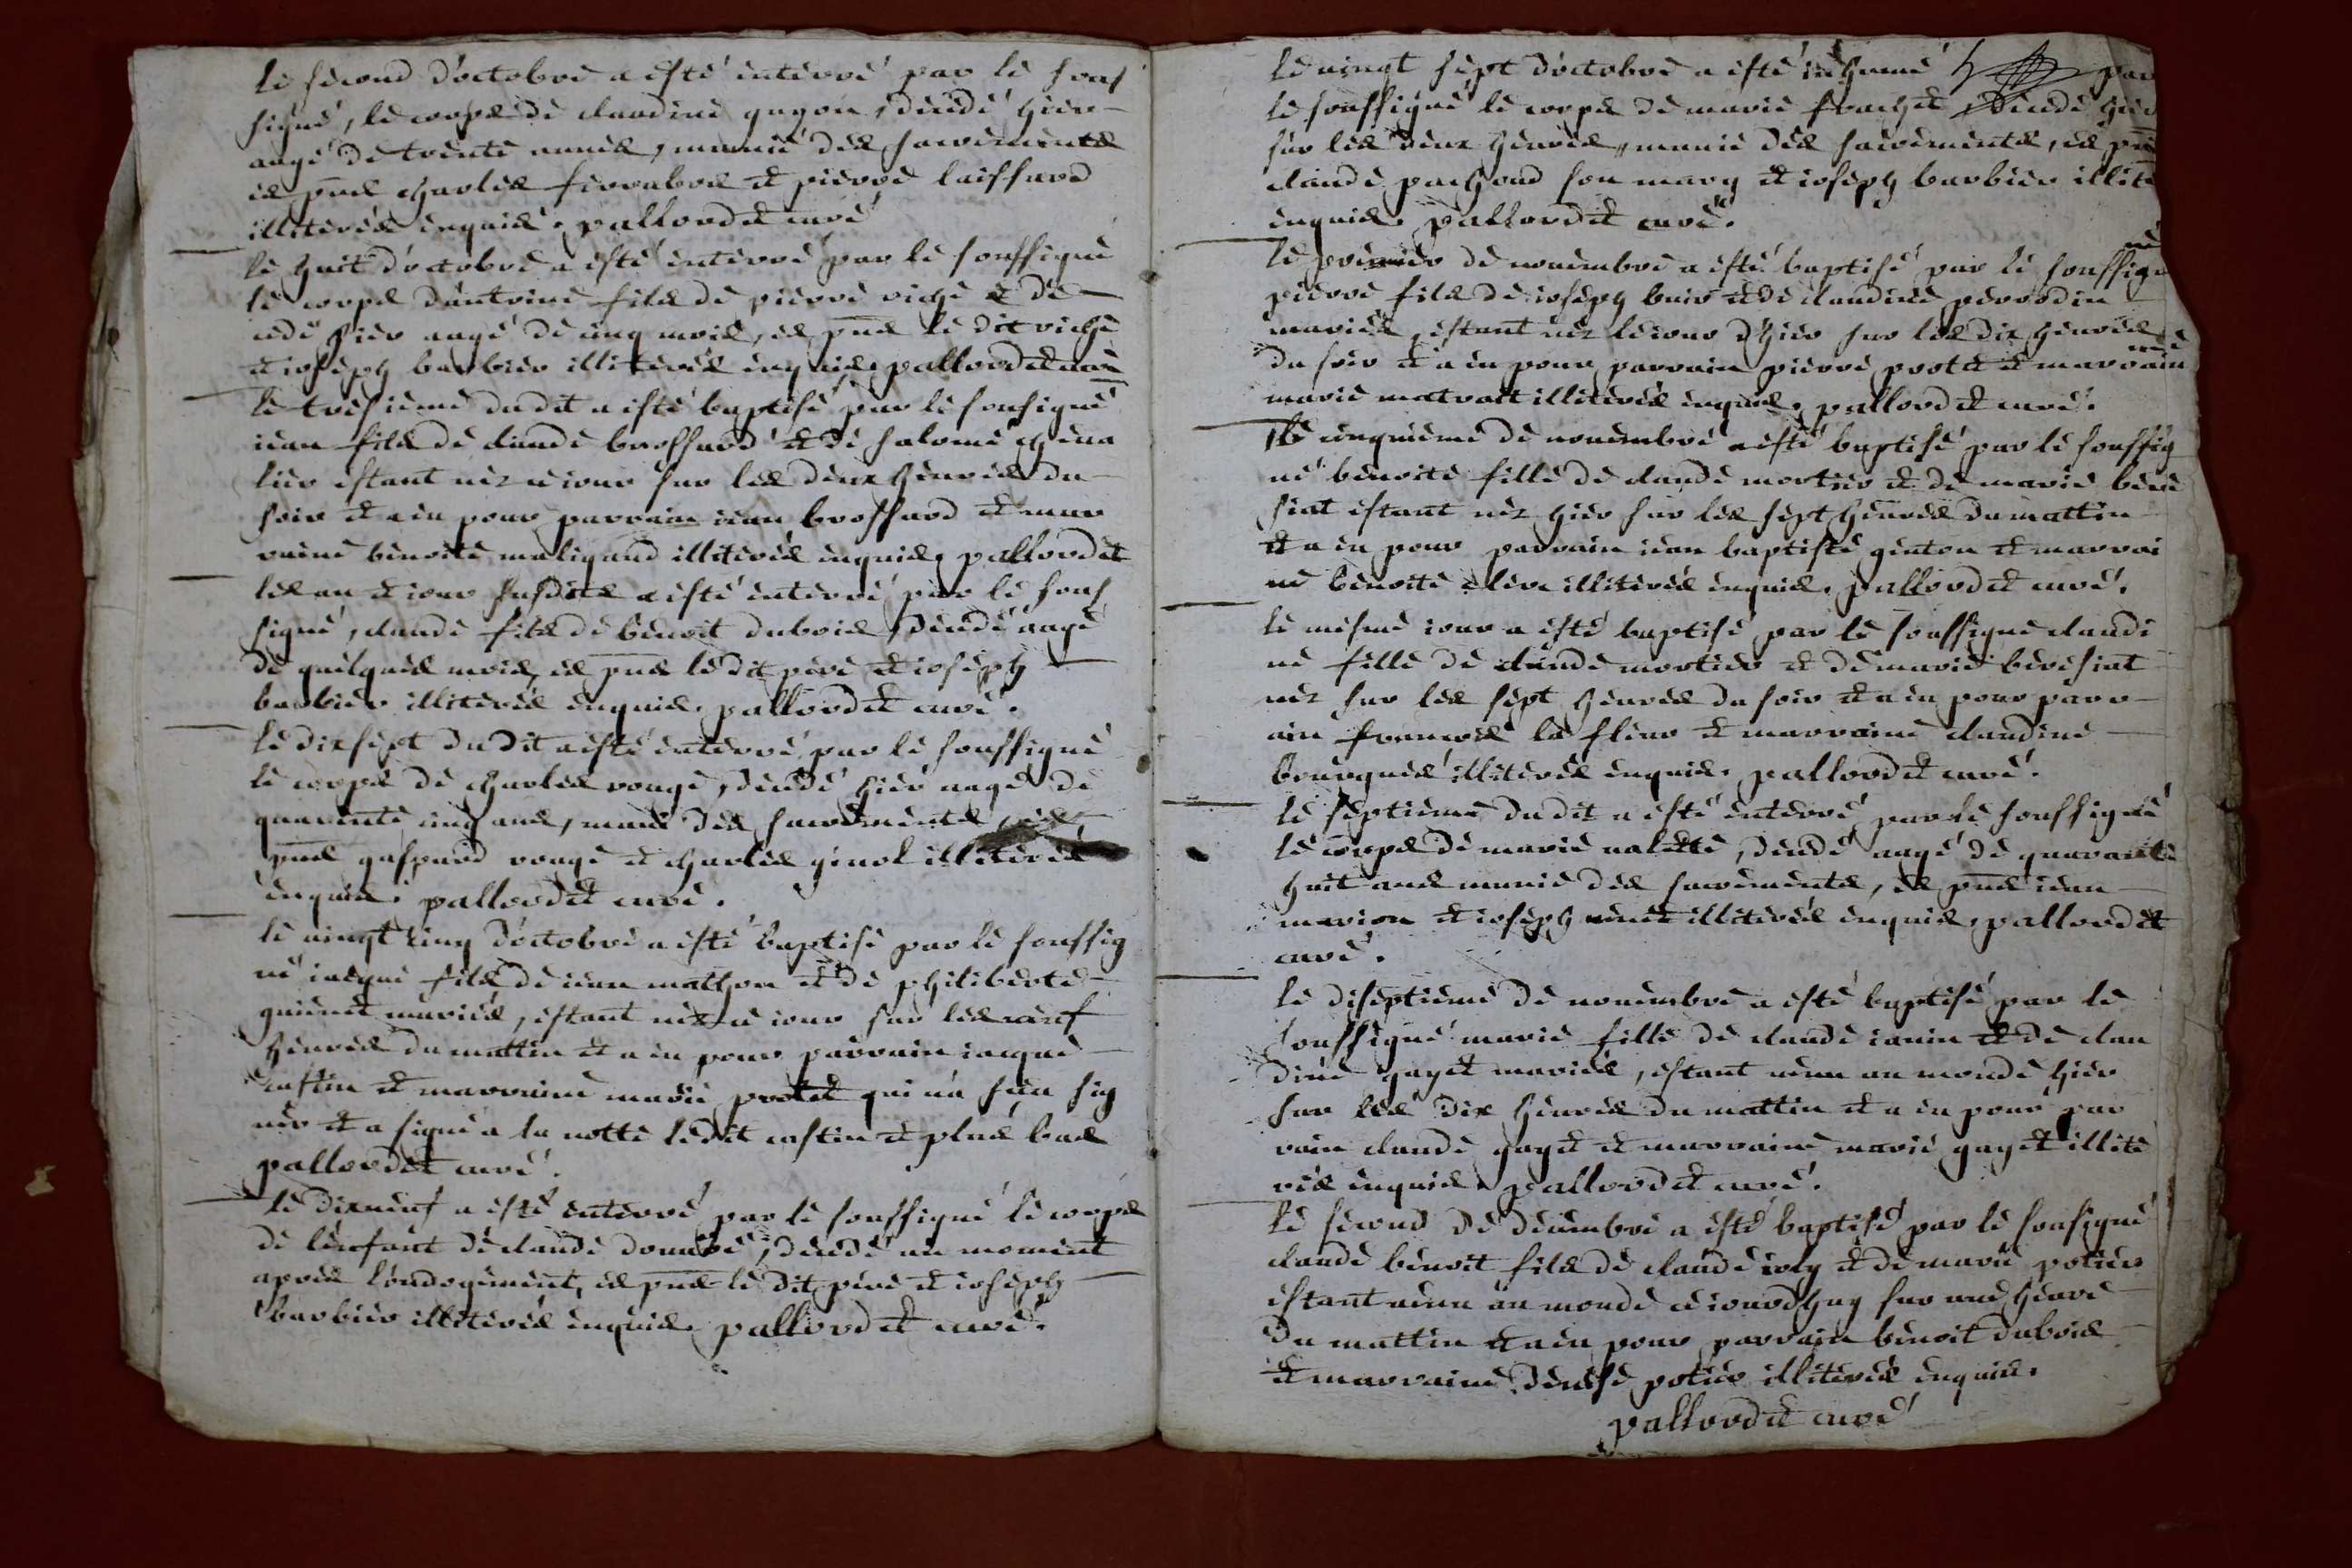 le second d'octobre a esté enterré par le sous
signé, le corps de claudine guyon, décedé hier
aagé de trente années, munie des sacrements
es pnĉ charles ferrabos et pierre laissard
illiterés enquis. pallordet curé
le huit d'octobre a esté enterré par le soussigné
le corps d'antoine fils de pierre riché et de
cedé hier aagé de cinq mois, es pnĉ le dit riché
et ioseph barbier illiterés enquis. pallordet curé
le tresieme dudit a esté baptisé par le sousigné
iean fils de claude brossard et de salomé chena
lier estant nez ce iour sur les deux heures du
soir et a eu pour parrain iean brossard et mar
raine benoite maligand illiterés enquis. pallordet
les an et iour susdits a esté enterré par le sous
signé, claude fils de benoit dubois, décedé aagé
de quelques mois, es pnĉ le dit pere et ioseph
barbier illiterés enquis. pallordet curé.
le dixsept dudit a esté enterré par le soussigné
le corps de charles rouge, décedé hier aagé de
quarente cinq ans, muni des sacrements, es
pnĉ gaspard rouge et charles ginol illiterés
enquis. pallordet curé.
le vingt cinq d'octobre a esté baptisé par le soussig
né iacque fils de iean mathon et de philiberte
guienet mariés, estant nez ce iour sur les neuf
heures du mattin et a eu pour parrain iacque
castin et marraine marie protet qui n'a sceu sig
ner et a signé a la notte ledit castin et plus bas
pallordet curé.
le dixneuf a esté enterré par le soussigné le corps
de l'enfant de claude , décedé un moment
aprés l'ondoyement, es pnĉ le dit pere et ioseph
barbier illiterés enquis. pallordet curé.
le vingt sept d'octobre a esté inhumé par
le soussigné le corps de marie frachet, décedé hier
sur les deux heures, munie des sacrements, es pnĉ
claude pachoud son mary et ioseph barbier illite
enquis. pallordet curé.
le premier de novembre a esté baptisé par le soussigné
pierre fils de ioseph buis et de claudine perrodin
mariés, estant nez le iour d'hier sur les dix heures
du soir et a eu pour parrain pierre protet et marraine
marie matrait illiterés enquis. pallordet curé.
le cinquieme de novembre a esté baptisé par le soussig
né benoite fille de claude mortier et de marie bere
siat estant nez hier sur les sept heures du mattin
et a eu pour parrain iean baptiste genton et marrai
ne benoite illiterés enquis. pallordet curé.
le mesme iour a esté baptisé par le soussigné claudi
ne fille de claude mortier et de marie beresiat
nez sur les sept heures du soir et a eu pour parr
ain francois la fleur et marraine claudine
bourgués illiterés enquis. pallordet curé.
le septieme dudit a esté enterré par le soussigné
le corps de marie valette, décedé aagé de quarante
huit ans munie des sacrements, es pnĉ iean
marion et ioseph illiterés enquis. pallordet
curé.
le diseptieme de novembre a esté baptisé par le
soussigné marie fille de claude ianin et de clau
dine gayet mariés, estant venu au monde hier
sur les dix heures du mattin et a eu pour par
rain claude gayet et marraine marie gayet illite
rés enquis. pallordet curé.
le second de decembre a esté baptisé par le sousigné
claude benoit fils de claude ioly et de marie potier
estant venu au monde ce iourdhuy sur une heure
du mattin et a eu pour parrain benoit dubois
et marraine denise potier illiterés enquis.
pallordet curé